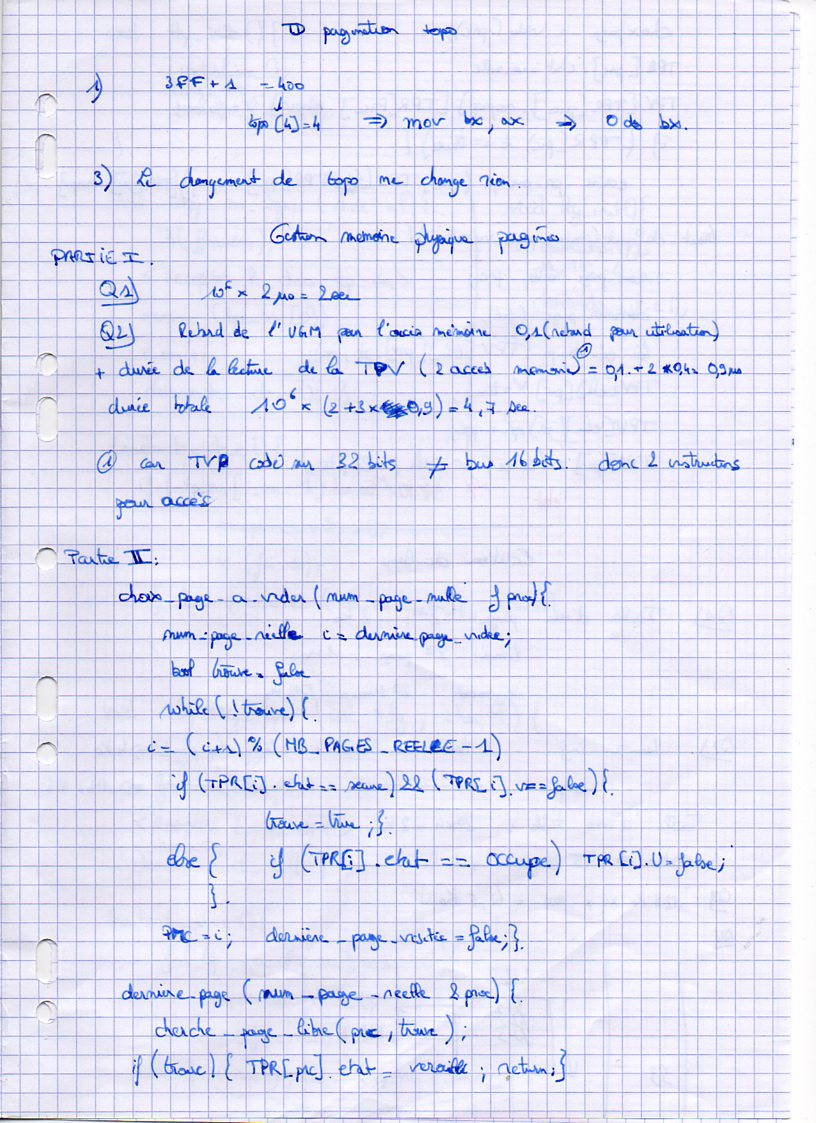 TD pagination topo
1) 3FF + 1 = 400
↓
topo [4] = 4 ⇒ mov bx, ax ⇒ 0 ds bx.
3) Le changement de topo ne change rien.
Gestion memoire physique paginée
PARTIE I.
Q1) 10^6 × 2 µs = 2 sec
Q2) Retard de l'UGM pour l'accès mémoire 0,1 (retard pour utilisation)
+ durée de la lecture de la TPV (2 accès memoire) ① = 0,1 + 2 × 0,4 = 0,9 µs
durée totale 10^6 × (2 + 3 × 0,9) = 4,7 sec.
① car TVP codé sur 32 bits ≠ bus 16 bits. donc 2 instructions
pour accès
Partie II:
choix_page_a_vider (num_page_reelle & prc) {
num_page_réelle i = derniere page_videe;
bool trouve = false
while (! trouve) {
i = (i+1) % (NB_PAGES_REELLE - 1)
if (TPR[i].etat == ) && (TPR[i].v == false) {
trouve = true ; }.
else { if (TPR[i].etat == occupe) TPR[i].U = false;
}.
prc = i; dernière_page_visitée = false; }.
derniere_page (num_page_reelle & prc) {
cherche_page_libre (prc, trouve);
if (trouve) { TPR[prc].etat = ; return; }